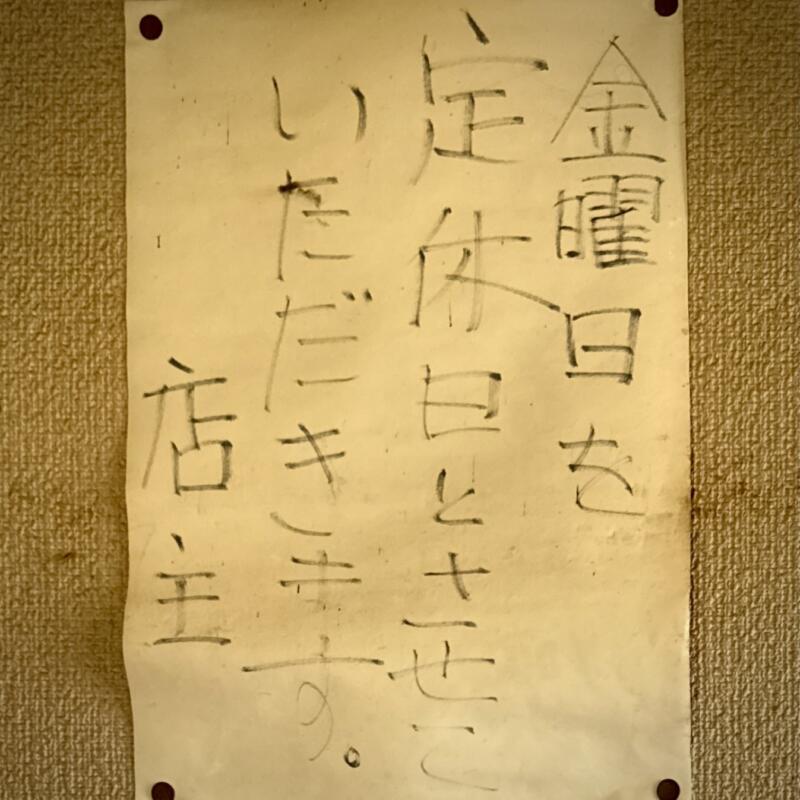 金曜日を
定休日とさせて
いただきます。
店主